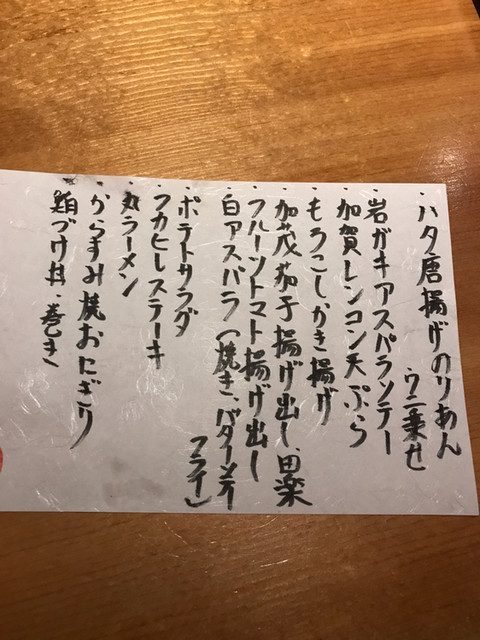 ・ハタ唐揚げのりあん
ウニ乗せ
・岩ガキアスパラソテー
・加賀レンコン天ぷら
・もろこしかき揚げ
・加茂茄子揚げ出し、田楽
・フルーツトマト揚げ出し
・白アスパラ（焼き、バターソテー
フライ）
・ポテトサラダ
・フカヒレステーキ
・丸ラーメン
・からすみ焼おにぎり
・鮨づけ丼・巻き